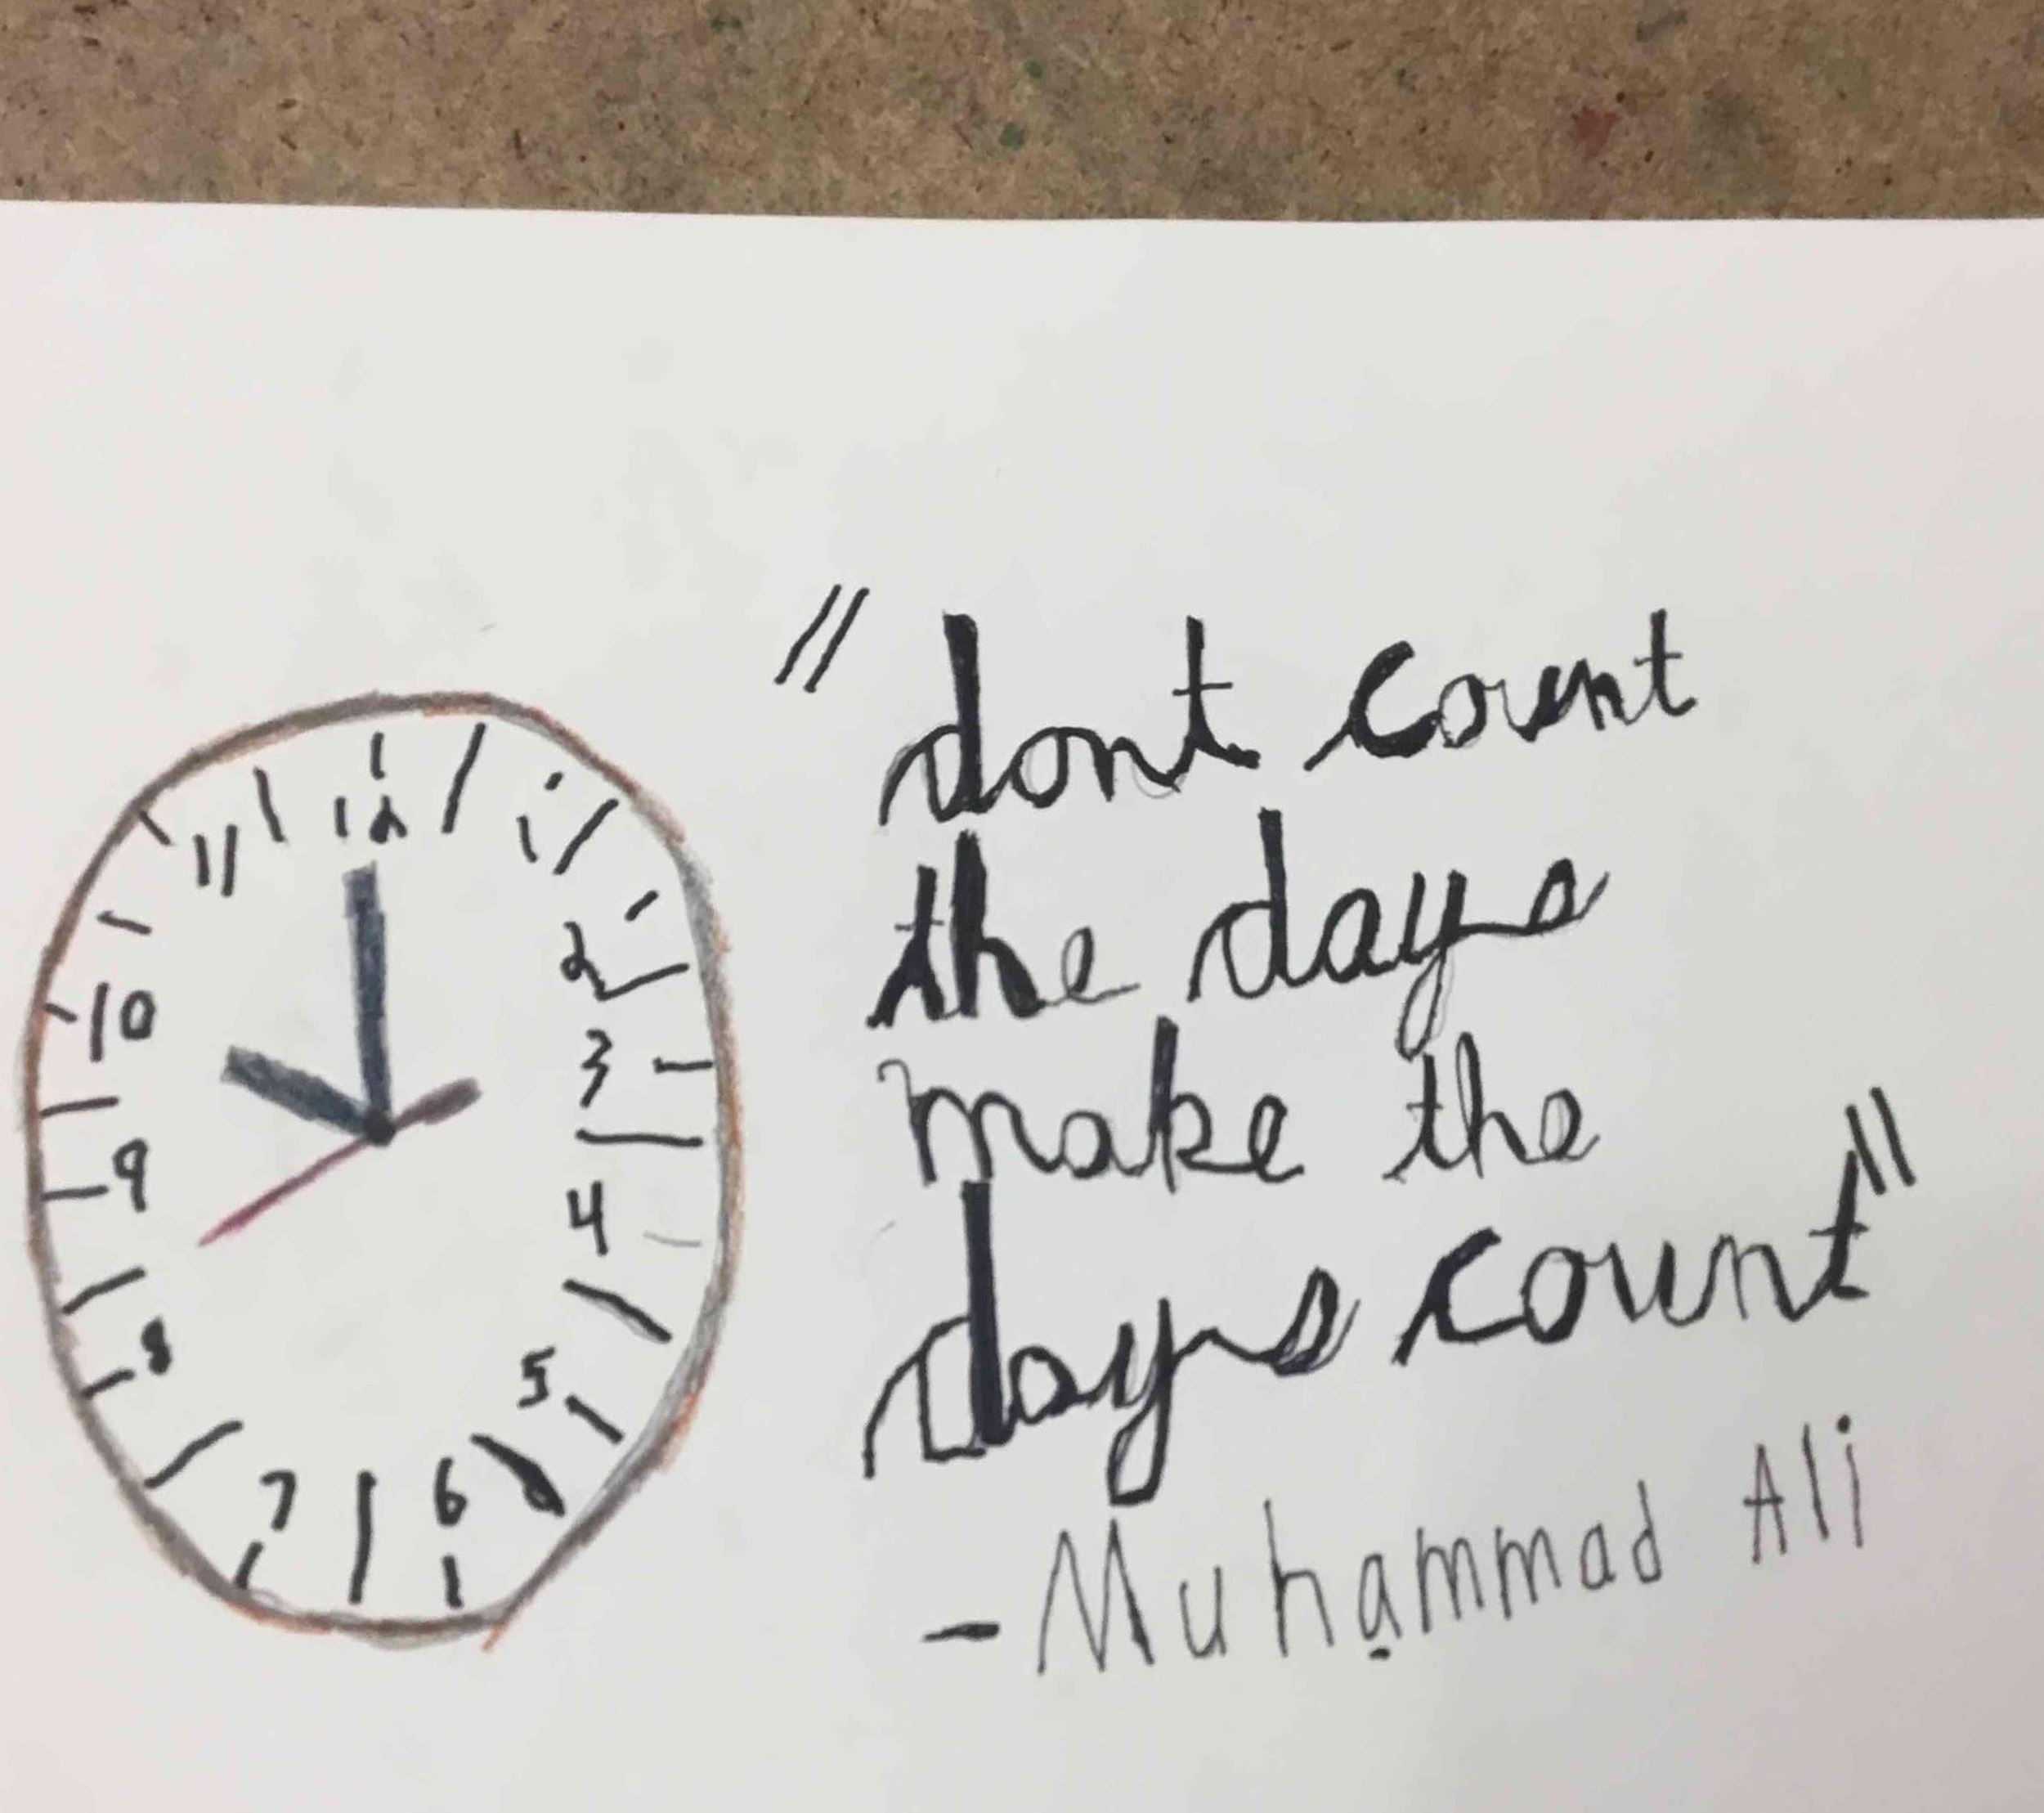 12
1
2
3
4
5
6
7
8
9
10
11
"dont count
the days
make the
days count"
-Muhammad Ali